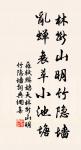 林断山明竹隐墙
乱蝉衰草小池塘
苏轼鹧鸪天林断山明
竹隐墙词典网集